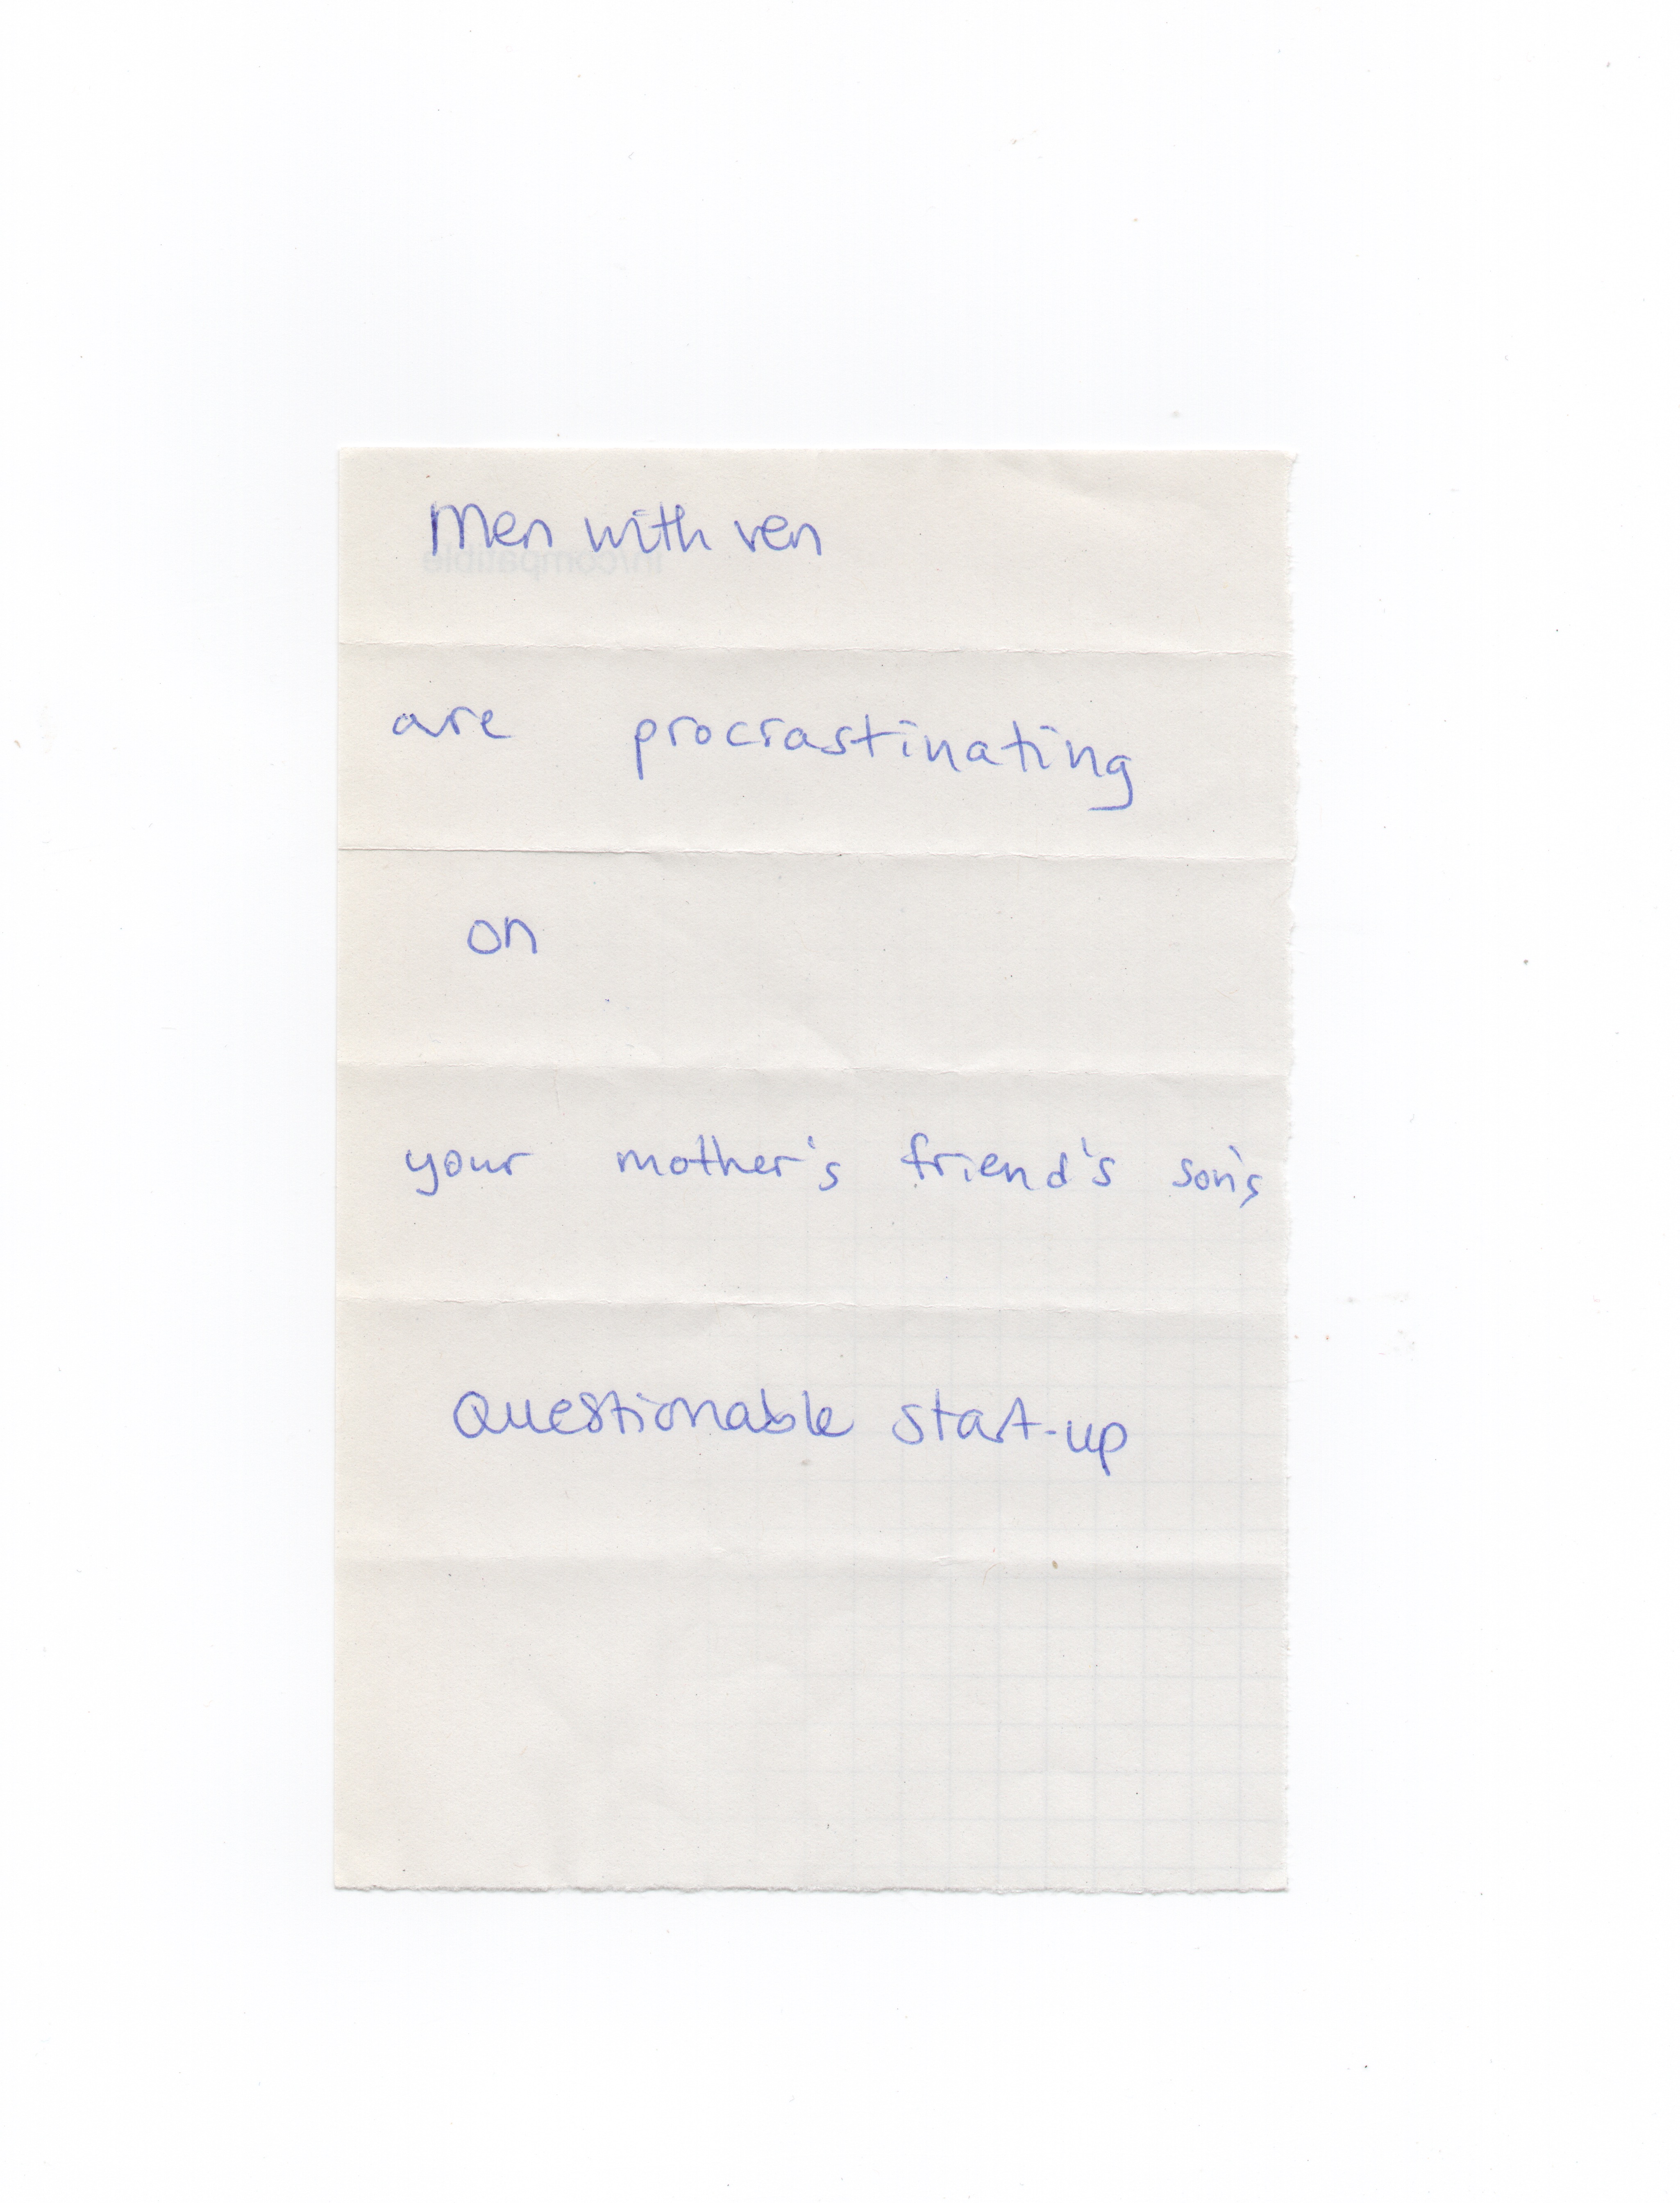 Men with ven
in/compatible
are procrastinating
on
your mother's friend's son's
Questionable start-up